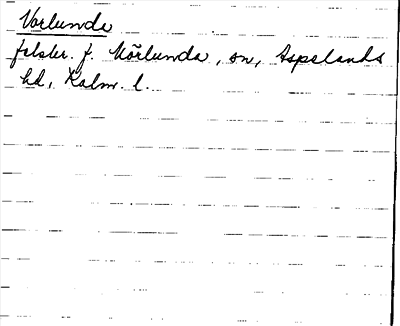 Vorlunda
felskr. f. Mörlunda, sn, Aspelands
hd, Kalm. l.